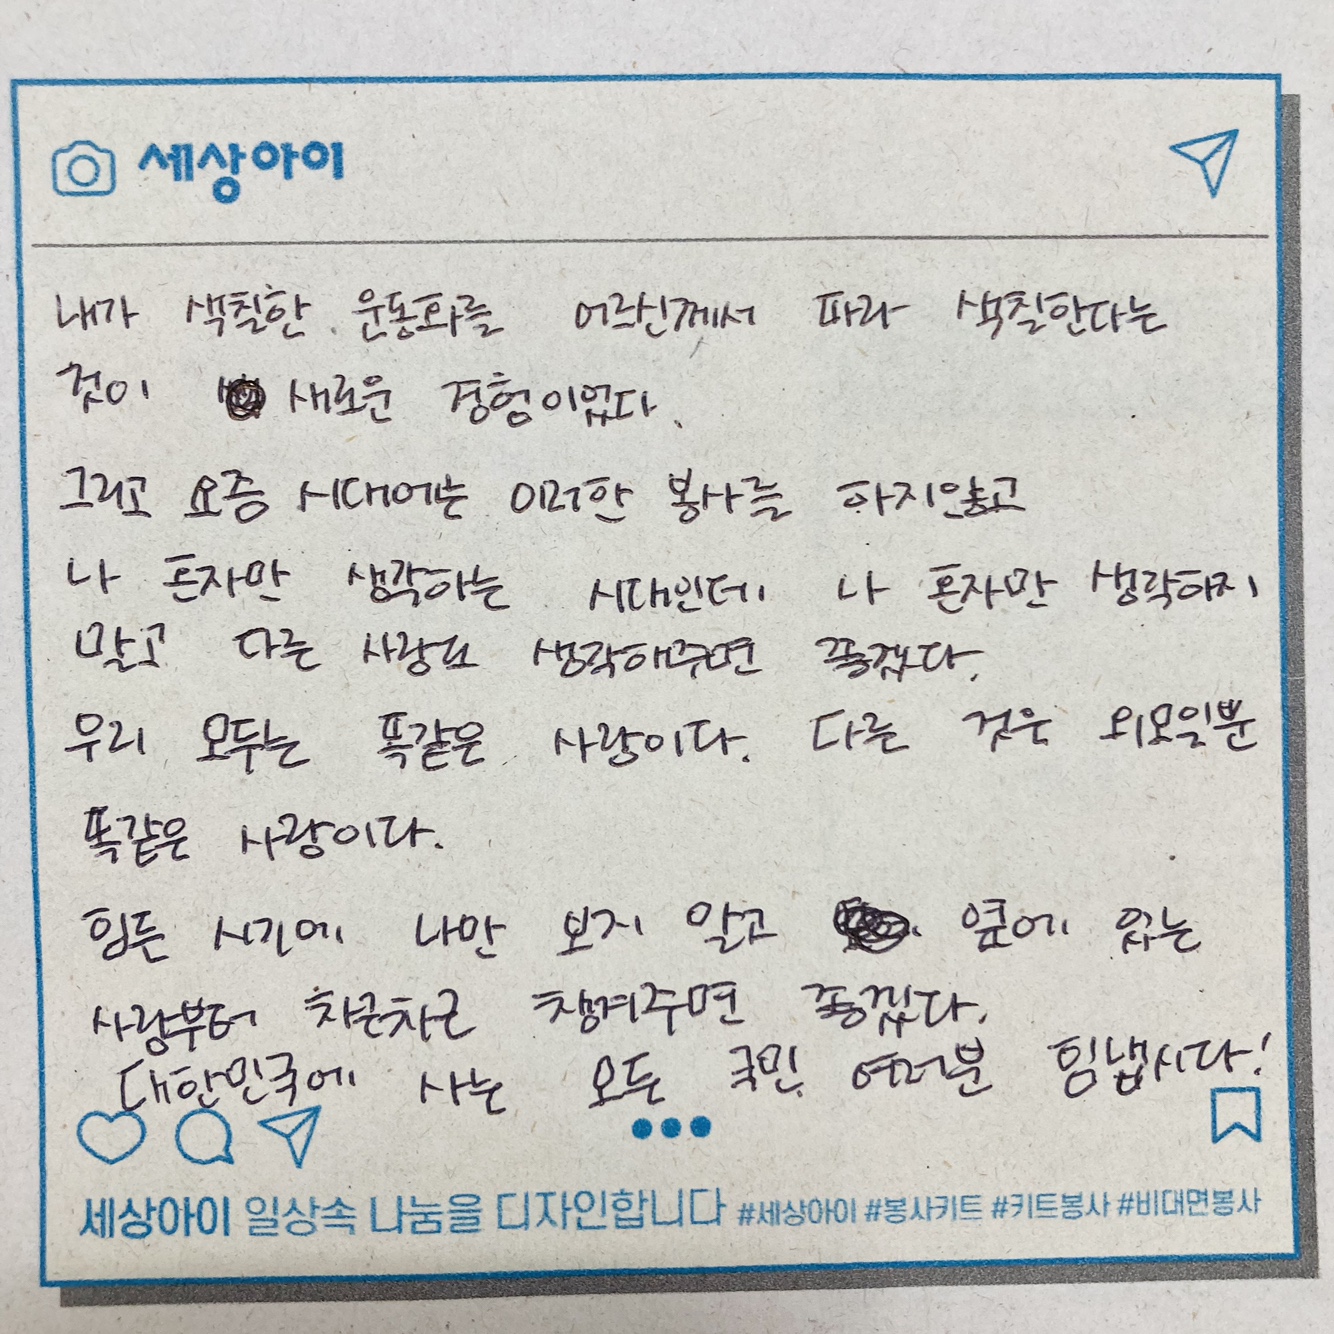 세상아이
내가 색칠한 운동화를 어르신께서 파라 색칠한다는
것이 새로운 경험이었다.
그리고 요즘 시대에는 이러한 봉사를 하지않고
나 혼자만 생각하는 시대인데 나 혼자만 생각하지
말고 다른 사람도 생각해주면 좋겠다.
우리 모두는 똑같은 사람이다. 다른 것은 외모일뿐
똑같은 사람이다.
힘든 시기에 나만 보지 말고 옆에 있는
사람부터 차근차근 챙겨주면 좋겠다.
대한민국에 사는 모든 국민 여러분 힘냅시다!
세상아이 일상속 나눔을 디자인합니다 #세상아이 #봉사키트 #키트봉사 #비대면봉사